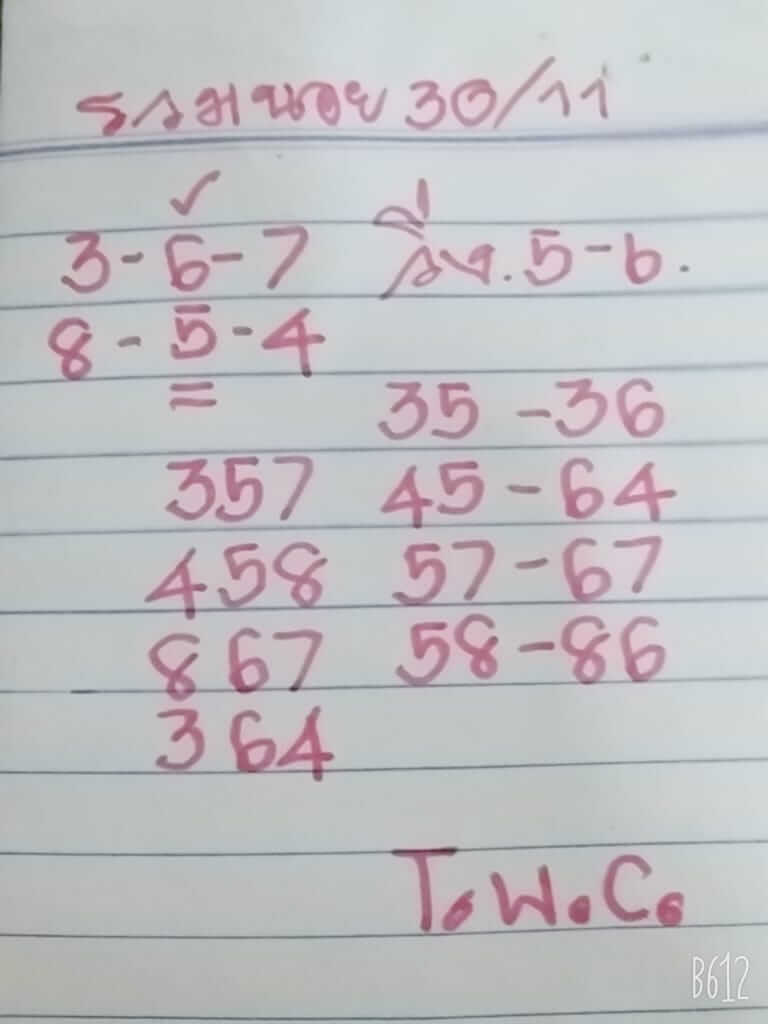 รวมหนอย 30/11
✓
3-6-7 วิ่ง.5-6.
8-5-4
=
35 -36
357 45-64
458 57-67
867 58-86
364
T.W.C.
B612